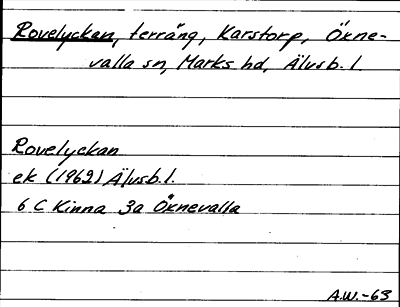 Rovelyckan, terräng, Karstorp, Ökne-
valla sn, Marks hd, Älvsb. l.
Rovelyckan
ek (1962) Älvsb. l.
6 C Kinna 3a Öknevalla
A.W.-63